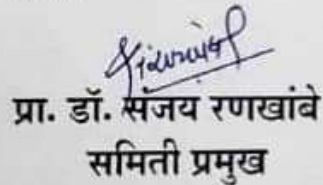 प्रा. डॉ. संजय रणखांबे
समिती प्रमुख